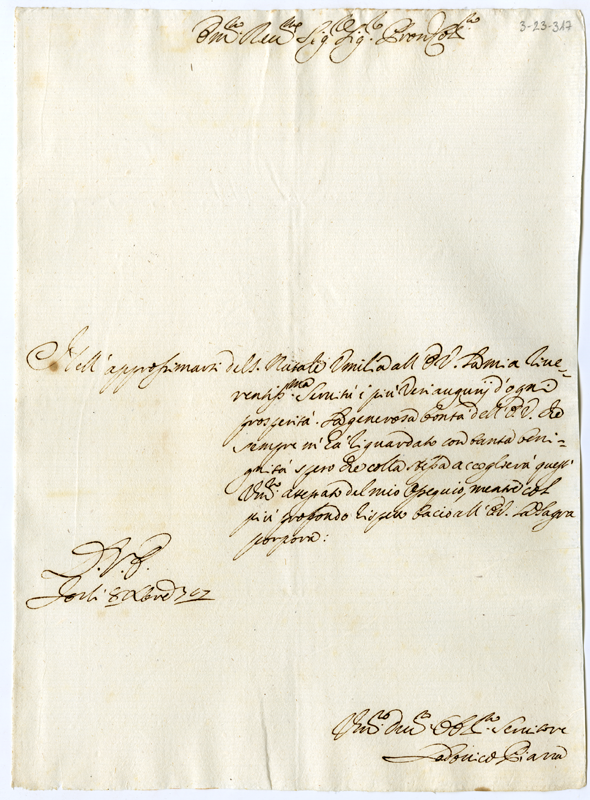 3-23-317
Em.mo Rev.mo Sig.r Sig.r Pron Col.mo
Nell'approssimarsi del S. Natale Umilia all' E.V. la mia rive-
rentiss.ma Servitù i più veri augurij d'ogni
prosperità. La generosa bontà dell' E.V. che
sempre m'hà riguardato con tanta beni-
gnità spero che colla stessa accoglierà quest'
Um.mo attestato del mio Ossequio, mentre col
più profondo rispetto bacio all' E.V. la Sagra
porpora:
D. V. E.
Forlì 8 Xbre 1707
Um.mo Dev.mo Obb.mo Servitore
Lodovico